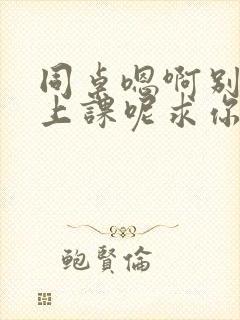 同桌嗯啊别
上課呢求你
鲍賢倫